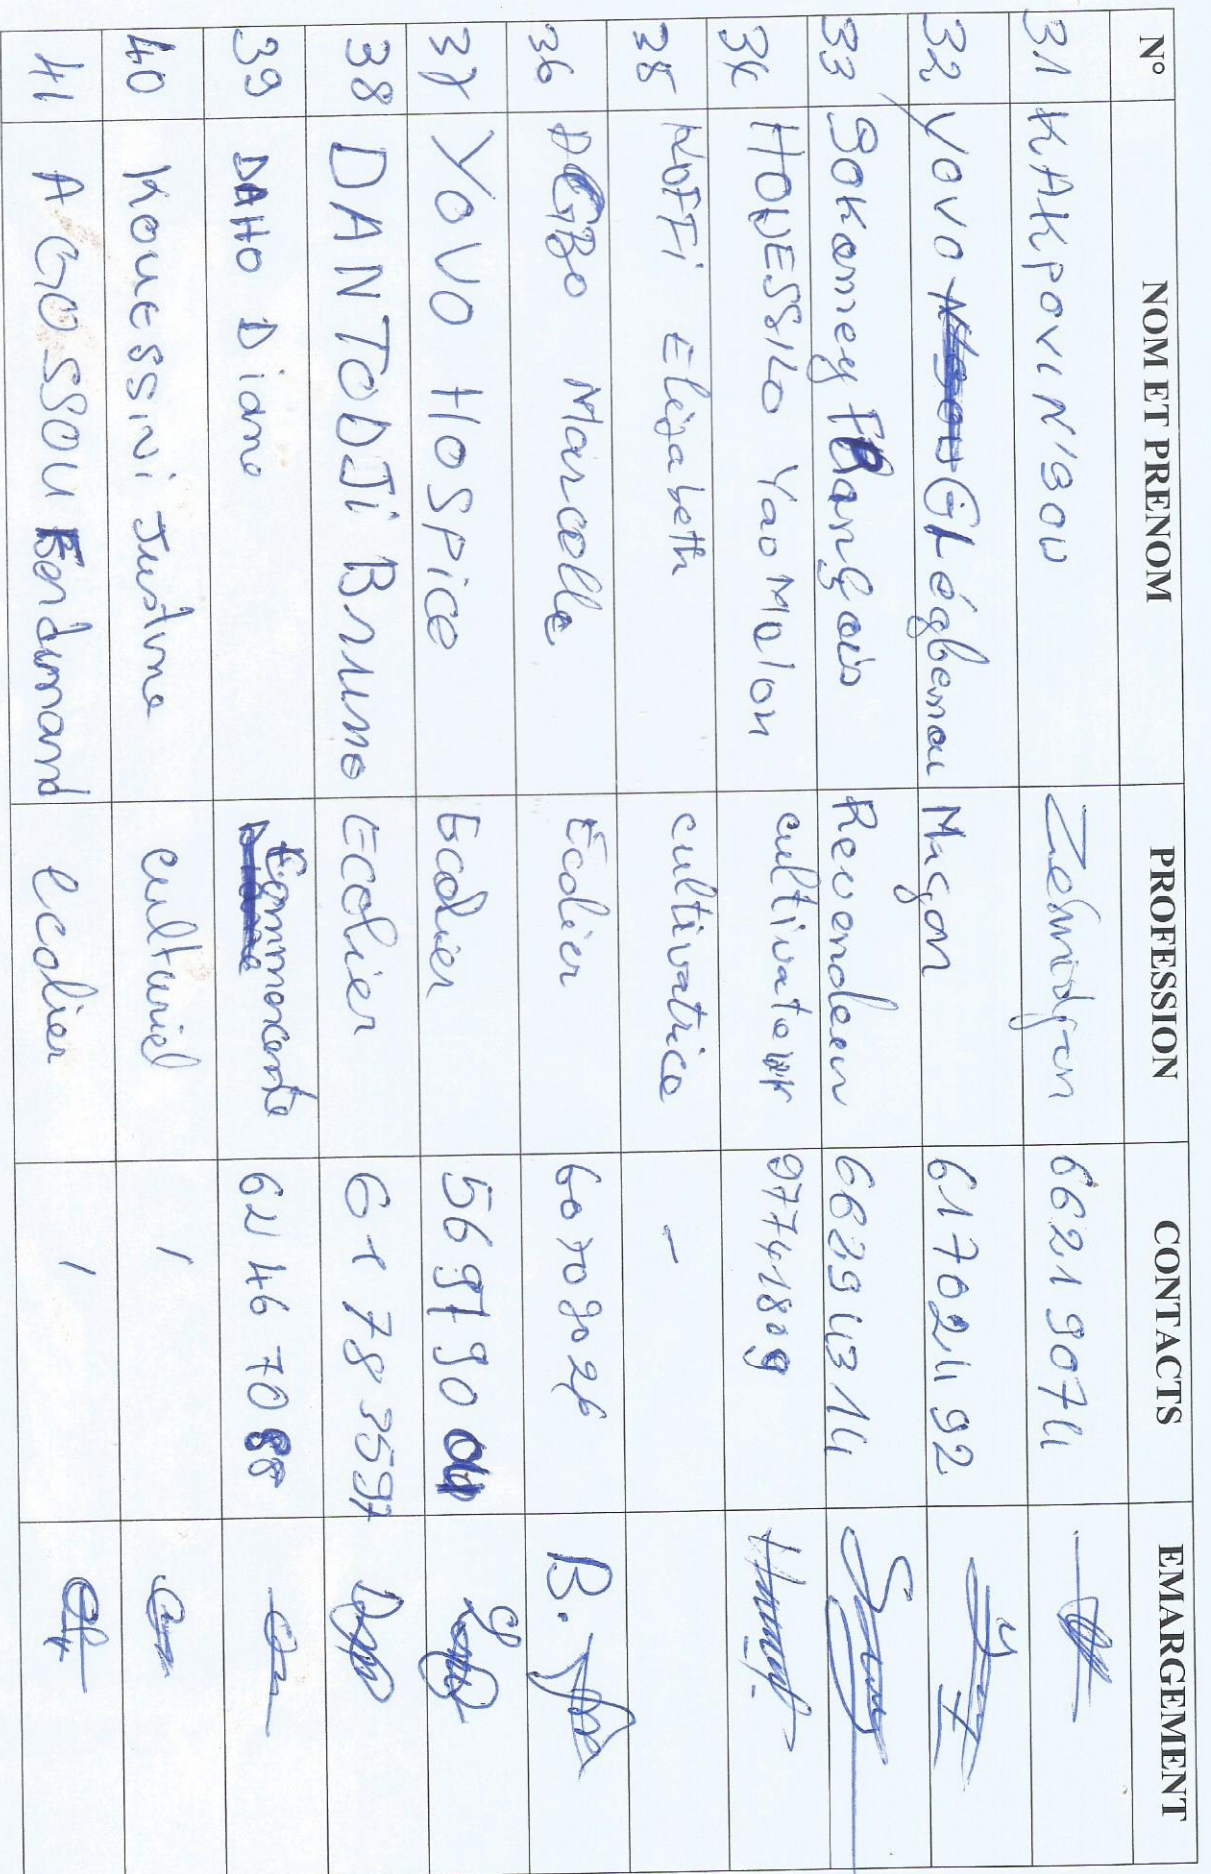 N° NOM ET PRENOM PROFESSION CONTACTS EMARGEMENT
31 KAKPOVI N'SOU Zemidjan 66219074
32 YOVO Glégbenou Maçon 61702492
33 Sokomey FRançois Revendeur 66294314
34 HOUESSILO Yao Malon cultivateur 97741809
35 KOFFI Elisabeth cultivatrice -
36 DEGBO Marcelle Ecolier 60709026
37 YOVO HOSPICE Ecolier 56979004
38 DANTODJI BRUNO ECOLIER 61783597
39 DAHO Diane Commercante 62467088
40 KOUESSIVI Justine /
41 AGOSSOU Ferdinand Ecolier /